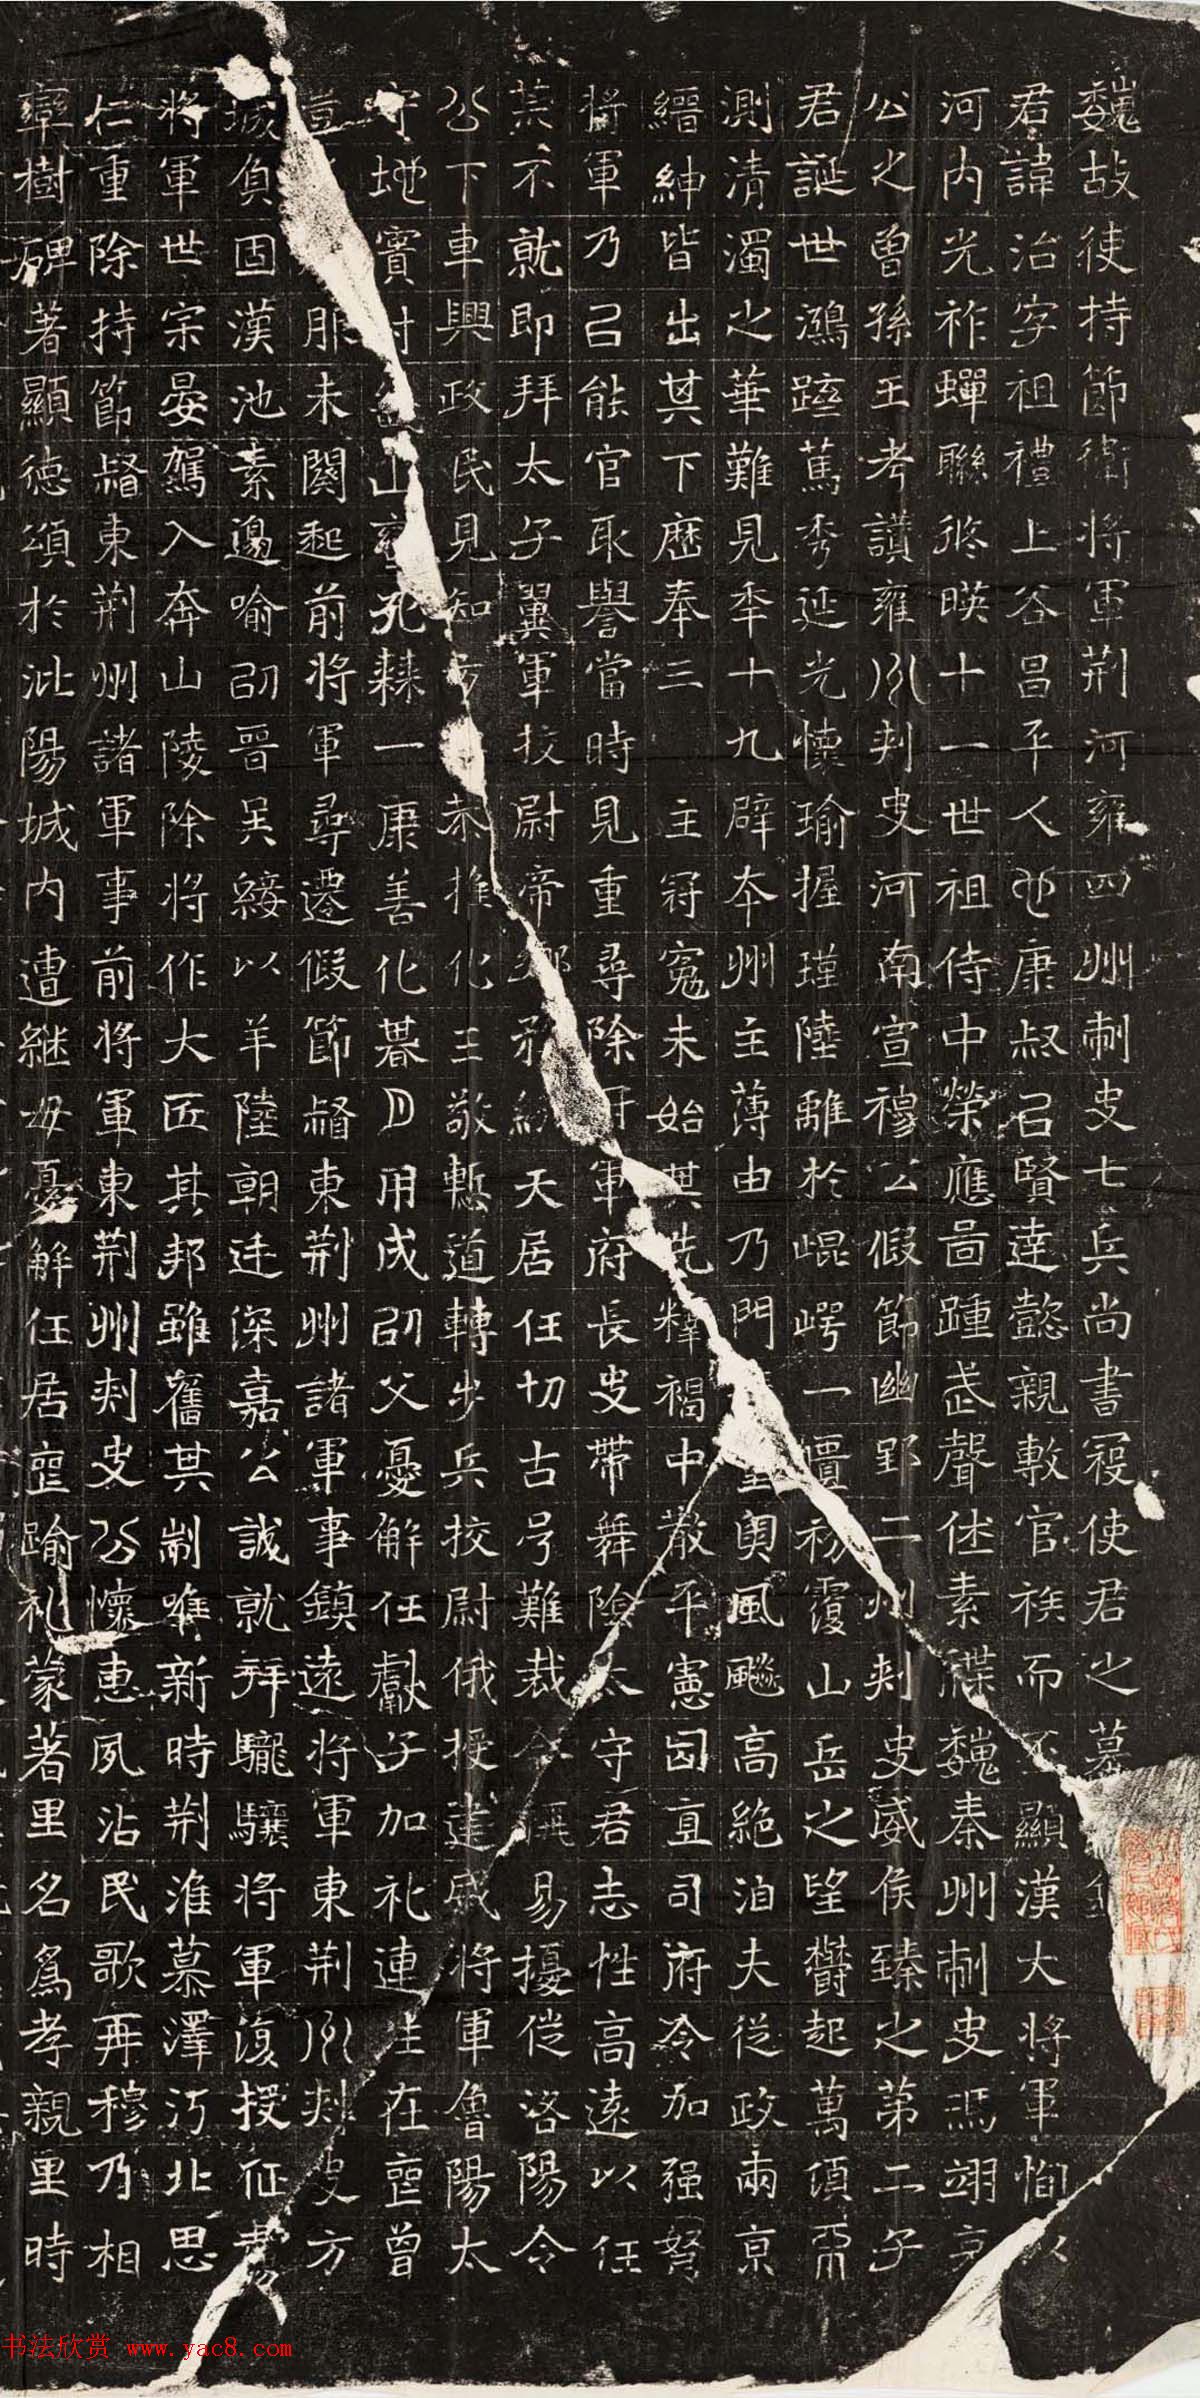 魏故使持節衛將軍荊河雍四州刺史七兵尚書寇使君之墓
君諱治字祖禮上谷昌平人也康叔以賢達懿親敷官族而顯漢大將軍恂以
河內光祚蟬聯修暎十一世祖侍中榮應啚踵武聲休素牒魏秦州刺史馮翊哀
公之曾孫王考讚雍州刺史河南宣穆公假節幽郢二州刺史威侯臻之第二子
君誕世鴻蹤篤秀延光懷瑜握瑾陸離於崐崿一匱初覆山岳之望欝起萬頃而
測清濁之華難見年十九辟本州主薄由乃門望輿風飈高絕洎夫從政兩京
縉紳皆出其下歷奉三主冠冕未始其先釋褐中散平憲囙直司府冷加强弩
將軍乃以能官取譽當時見重尋除軍府長史帶舞陰太守君志性高遠以任
莫不就即拜太子翼軍校尉帝天居任切古号難裁令易擾從洛陽令
公下車興政民見知恭推化三敬慙道轉步兵校尉俄授建威將軍魯陽太
守地實山孔棘一康善化朞月用成邵父憂解任獻子加礼連在亶曾
服未闋起前將軍尋遷假節督東荊州諸軍事鎮遠將軍東荊州刺史方
城負固漢池素邊喻邵晉吳綏以羊陸朝廷深嘉公誠就拜驪驤將軍復授征虜
將軍世宗晏駕入奔山陵除將作大匠其邦雖舊其制唯新時荊淮慕澤沔北思
仁重除持節督東荊州諸軍事前將軍東荊州刺史公懷惠夙沾民歌再穆乃相
率樹碑著顯德頌於沘陽城內遭継母憂解任居亶踰礼蒙著里名爲孝親里時
书法欣赏 www.yac8.com